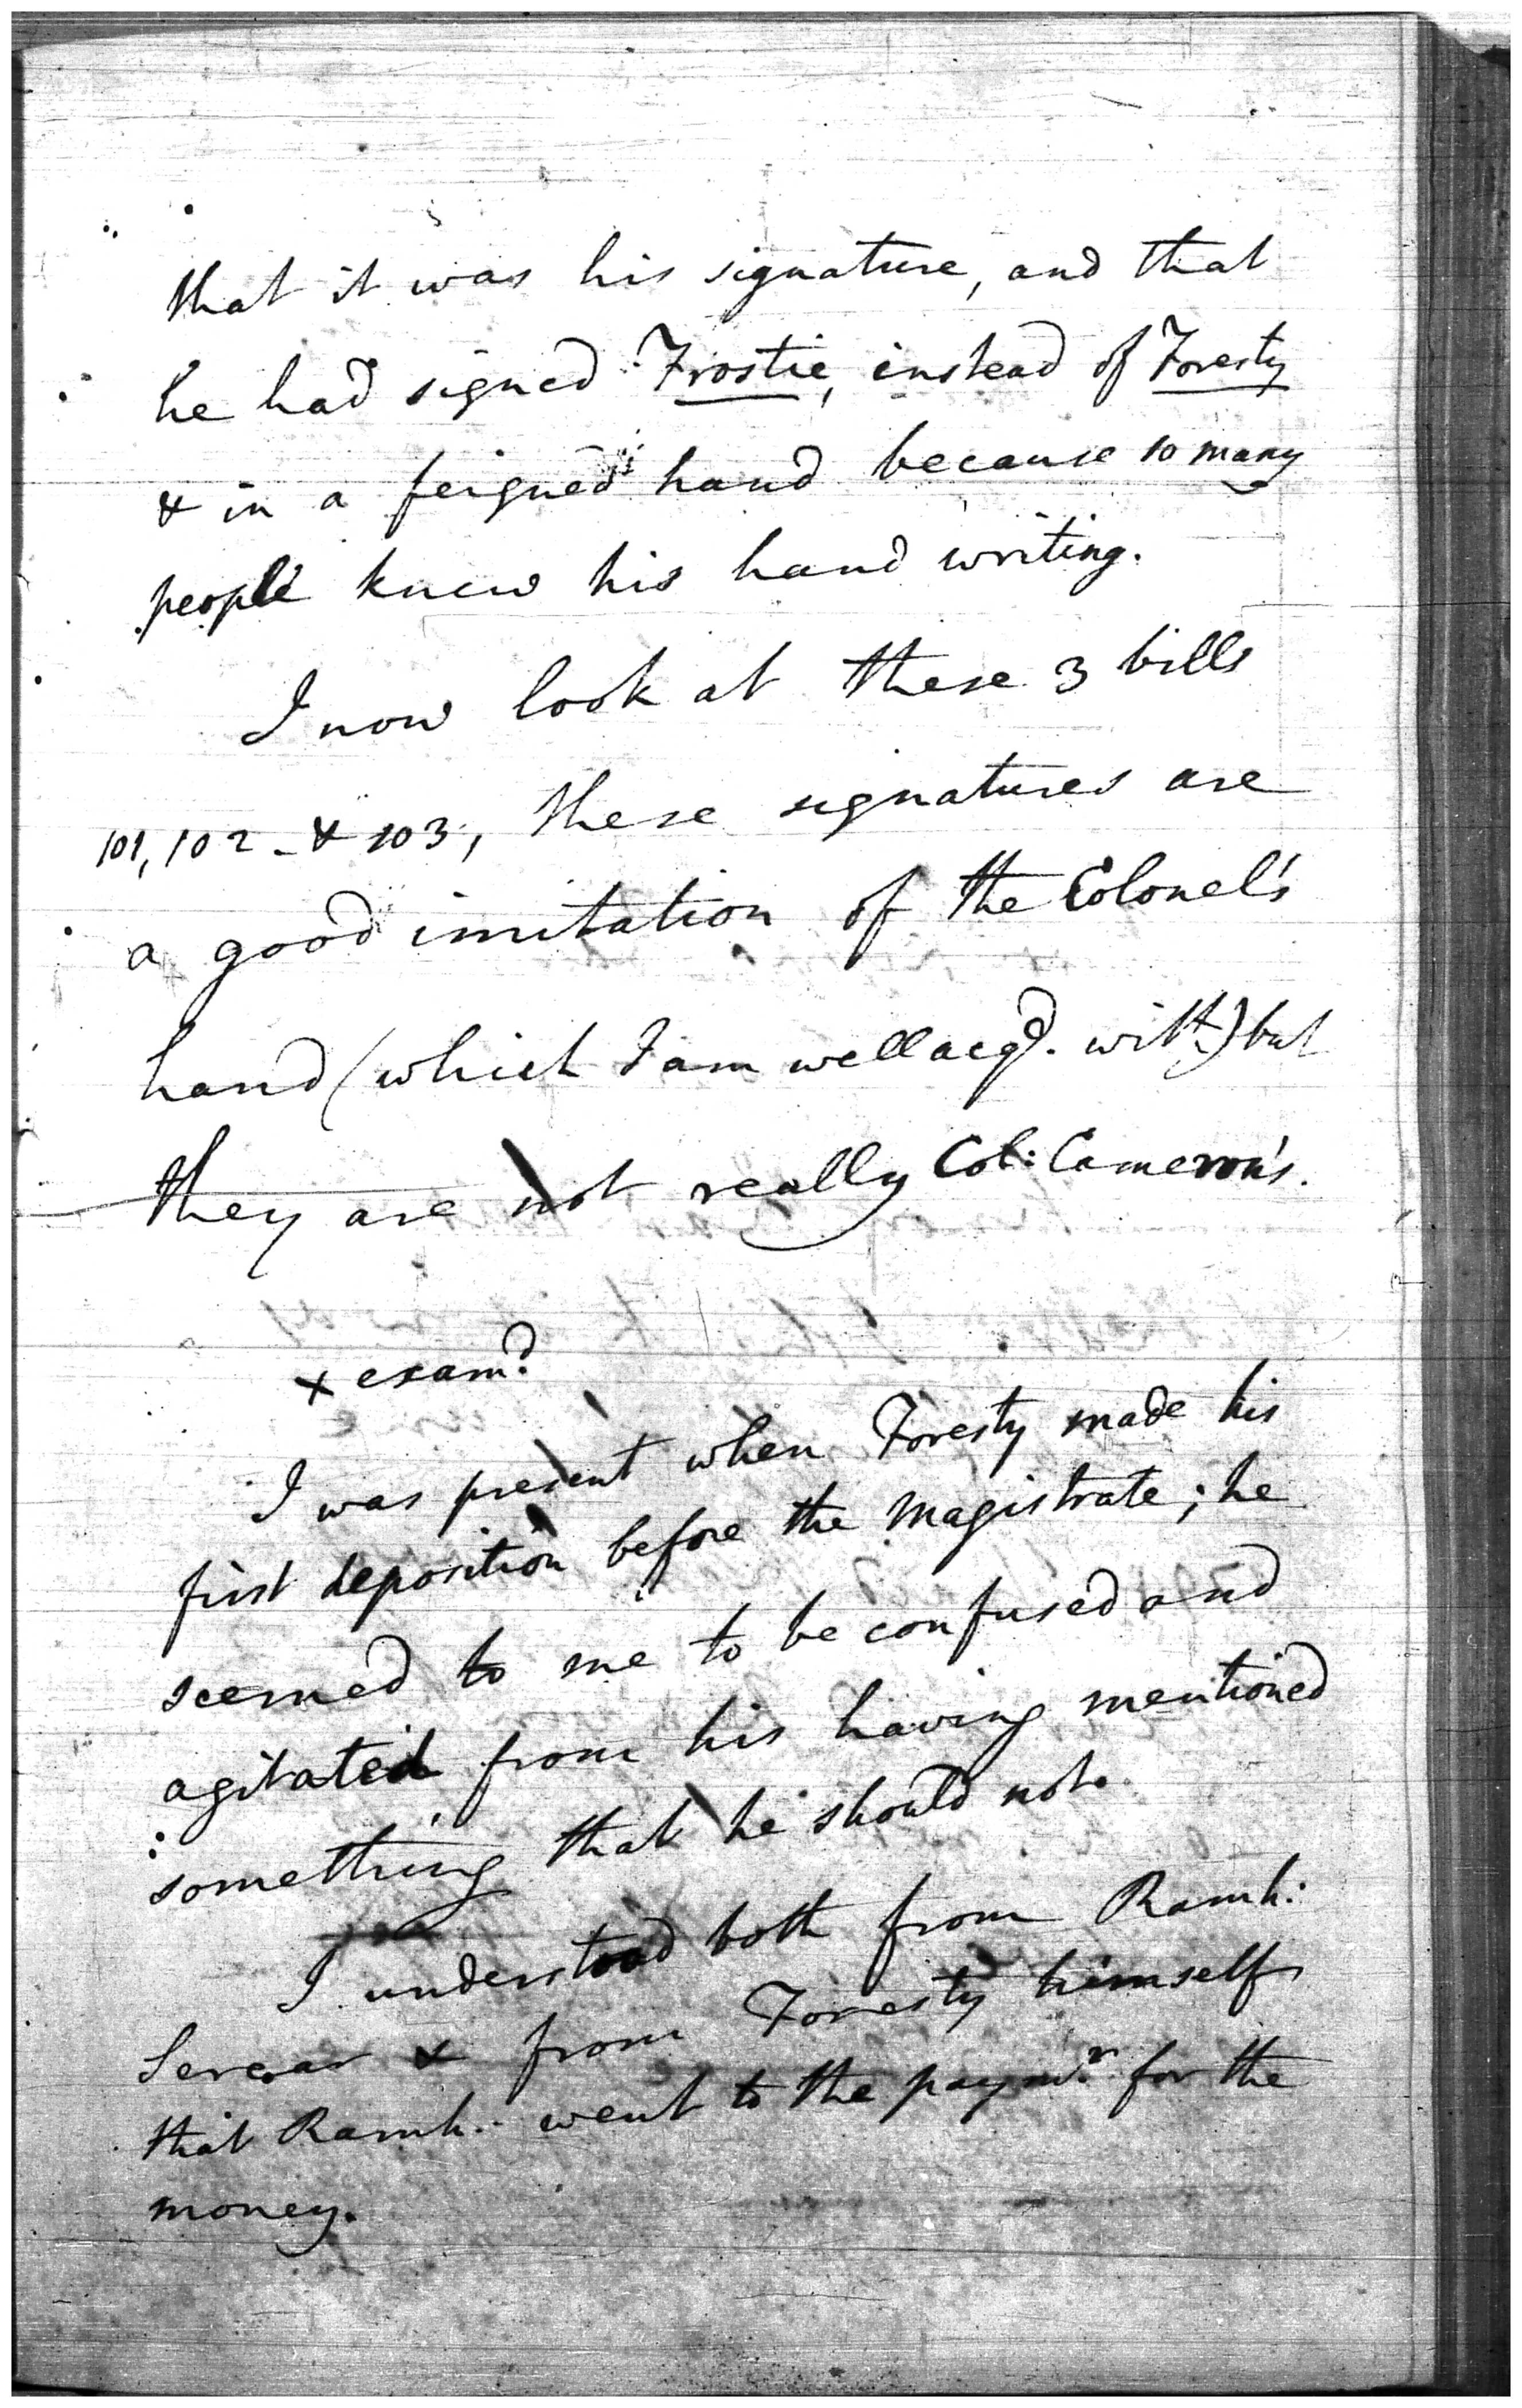 that it was his signature, and that
he had signed Frostie, instead of Foresty
& in a feigned hand because so many
people knew his hand writing.
I now look at these 3 bills
101, 102 - & 103, these signatures are
a good imitation of the Colonel's
hand (which I am well acqd. with) but
they are not really Col: Cameron's.
x examd.
I was present when Foresty made his
first deposition before the Magistrate; he
seemed to me to be confused and
agitated from his having mentioned
something that he should not.
I understood both from Ramh:
Sercar & from Foresty himself
that Ramh: went to the paymr. for the
money.